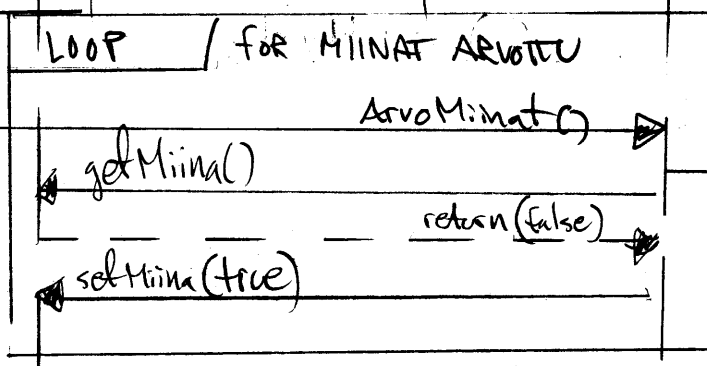 LOOP / FOR MIINAT ARVOTTU
ArvoMiinat()
getMiina()
return(false)
setMiina(true)